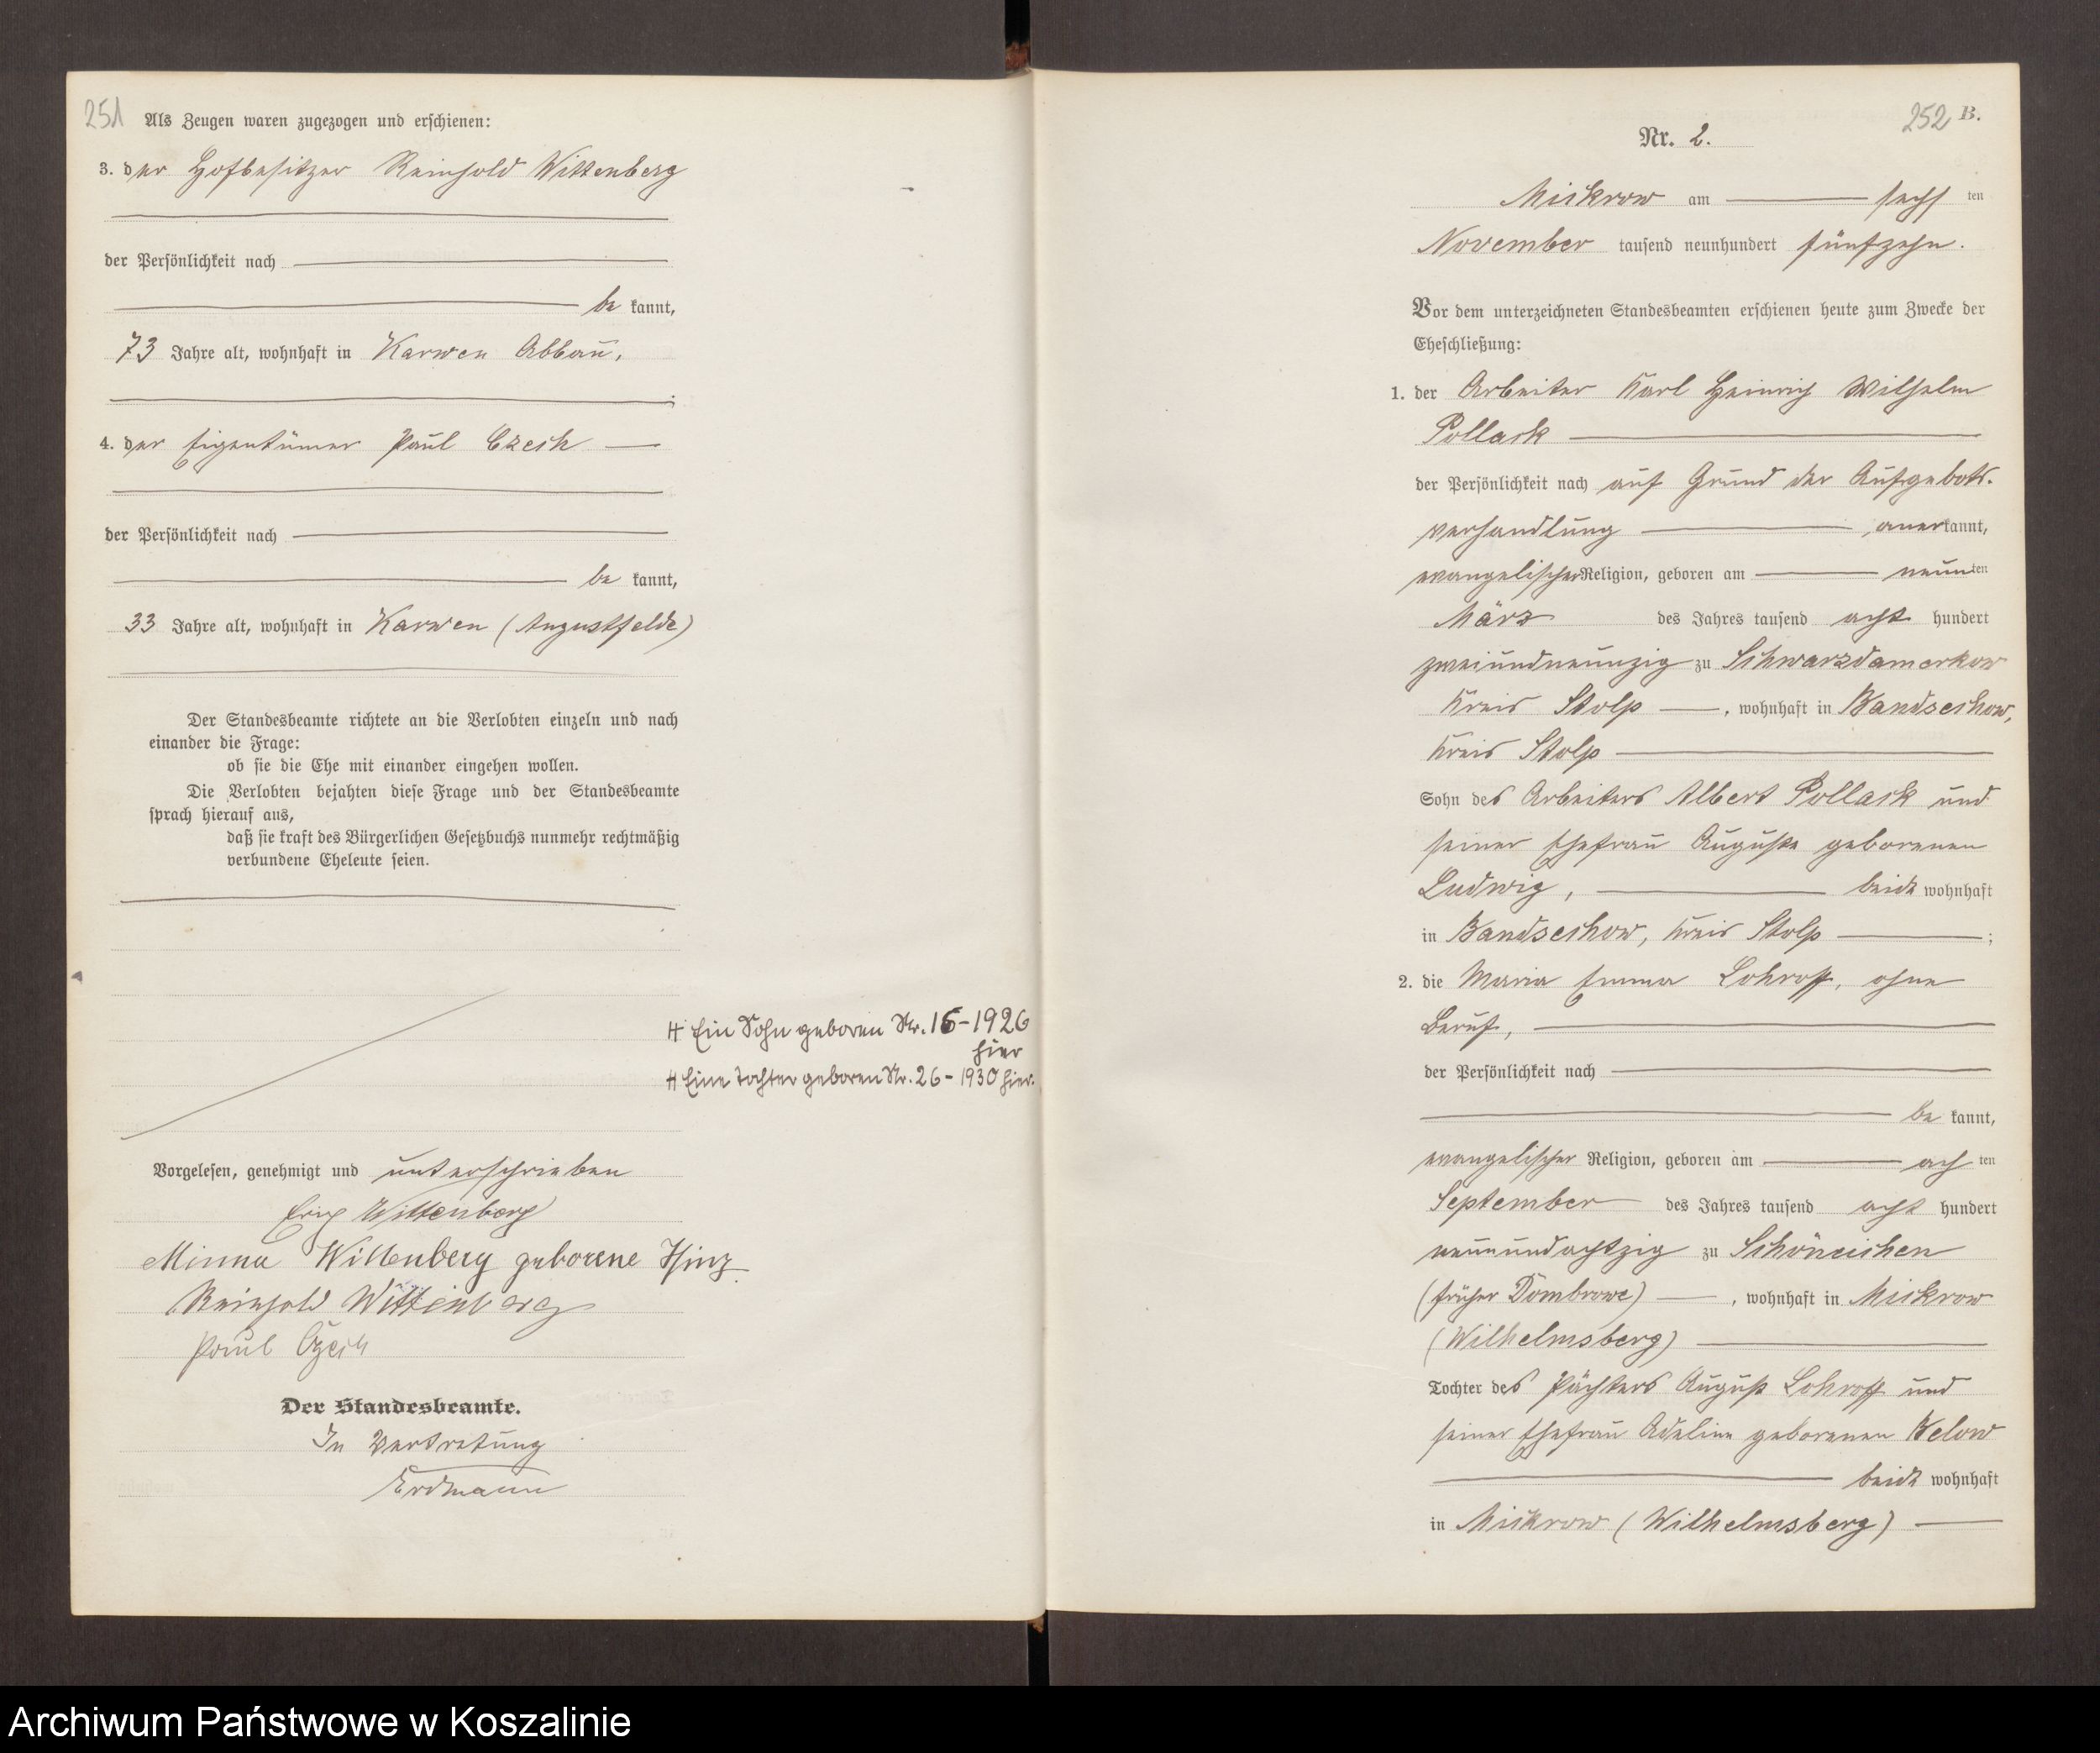 251
Als Zeugen waren zugezogen und erschienen:
3. der Hofbesitzer Reinhold Wittenberg
der Persönlichkeit nach
be kannt,
73 Jahre alt, wohnhaft in Karwen Abbau,
;
4. der Eigentümer Paul Czech
der Persönlichkeit nach
be kannt,
33 Jahre alt, wohnhaft in Karwen (Augustfelde)
Der Standesbeamte richtete an die Verlobten einzeln und nach
einander die Frage:
ob sie die Ehe mit einander eingehen wollen.
Die Verlobten bejahten diese Frage und der Standesbeamte
sprach hierauf aus,
daß sie kraft des Bürgerlichen Gesetzbuchs nunmehr rechtmäßig
verbundene Eheleute seien.
Ein Sohn geboren Nr. 16-1926
hier
Eine Tochter geboren Nr. 26-1930 hier.
Vorgelesen, genehmigt und unterschrieben
Erich Wittenberg
Minna Wittenberg geborene Hinz
Reinhold Wittenberg
Paul Czech
Der Standesbeamte.
In Vertretung
Erdmann
252 B.
Nr. 2.
Mickrow am sechs ten
November tausend neunhundert fünfzehn.
Vor dem unterzeichneten Standesbeamten erschienen heute zum Zwecke der
Eheschließung:
1. der Arbeiter Karl Heinrich Wilhelm
Pollack
der Persönlichkeit nach auf Grund der Aufgebots-
verhandlung anerkannt,
evangelischer Religion, geboren am neunten
März des Jahres tausend acht hundert
zweiundneunzig zu Schwarzdamerkow
Kreis Stolp, wohnhaft in Bandsechow,
Kreis Stolp
Sohn des Arbeiters Albert Pollack und
seiner Ehefrau Auguste geborenen
Ludwig, beide wohnhaft
in Bandsechow, Kreis Stolp ;
2. die Maria Emma Lohroff, ohne
Beruf,
der Persönlichkeit nach
be kannt,
evangelischer Religion, geboren am ach ten
September des Jahres tausend acht hundert
neunundachtzig zu Schöneichen
(früher Dombrowe), wohnhaft in Mickrow
(Wilhelmsberg)
Tochter des Pächters August Lohroff und
seiner Ehefrau Adeline geborenen Below
beide wohnhaft
in Mickrow (Wilhelmsberg)
Archiwum Państwowe w Koszalinie